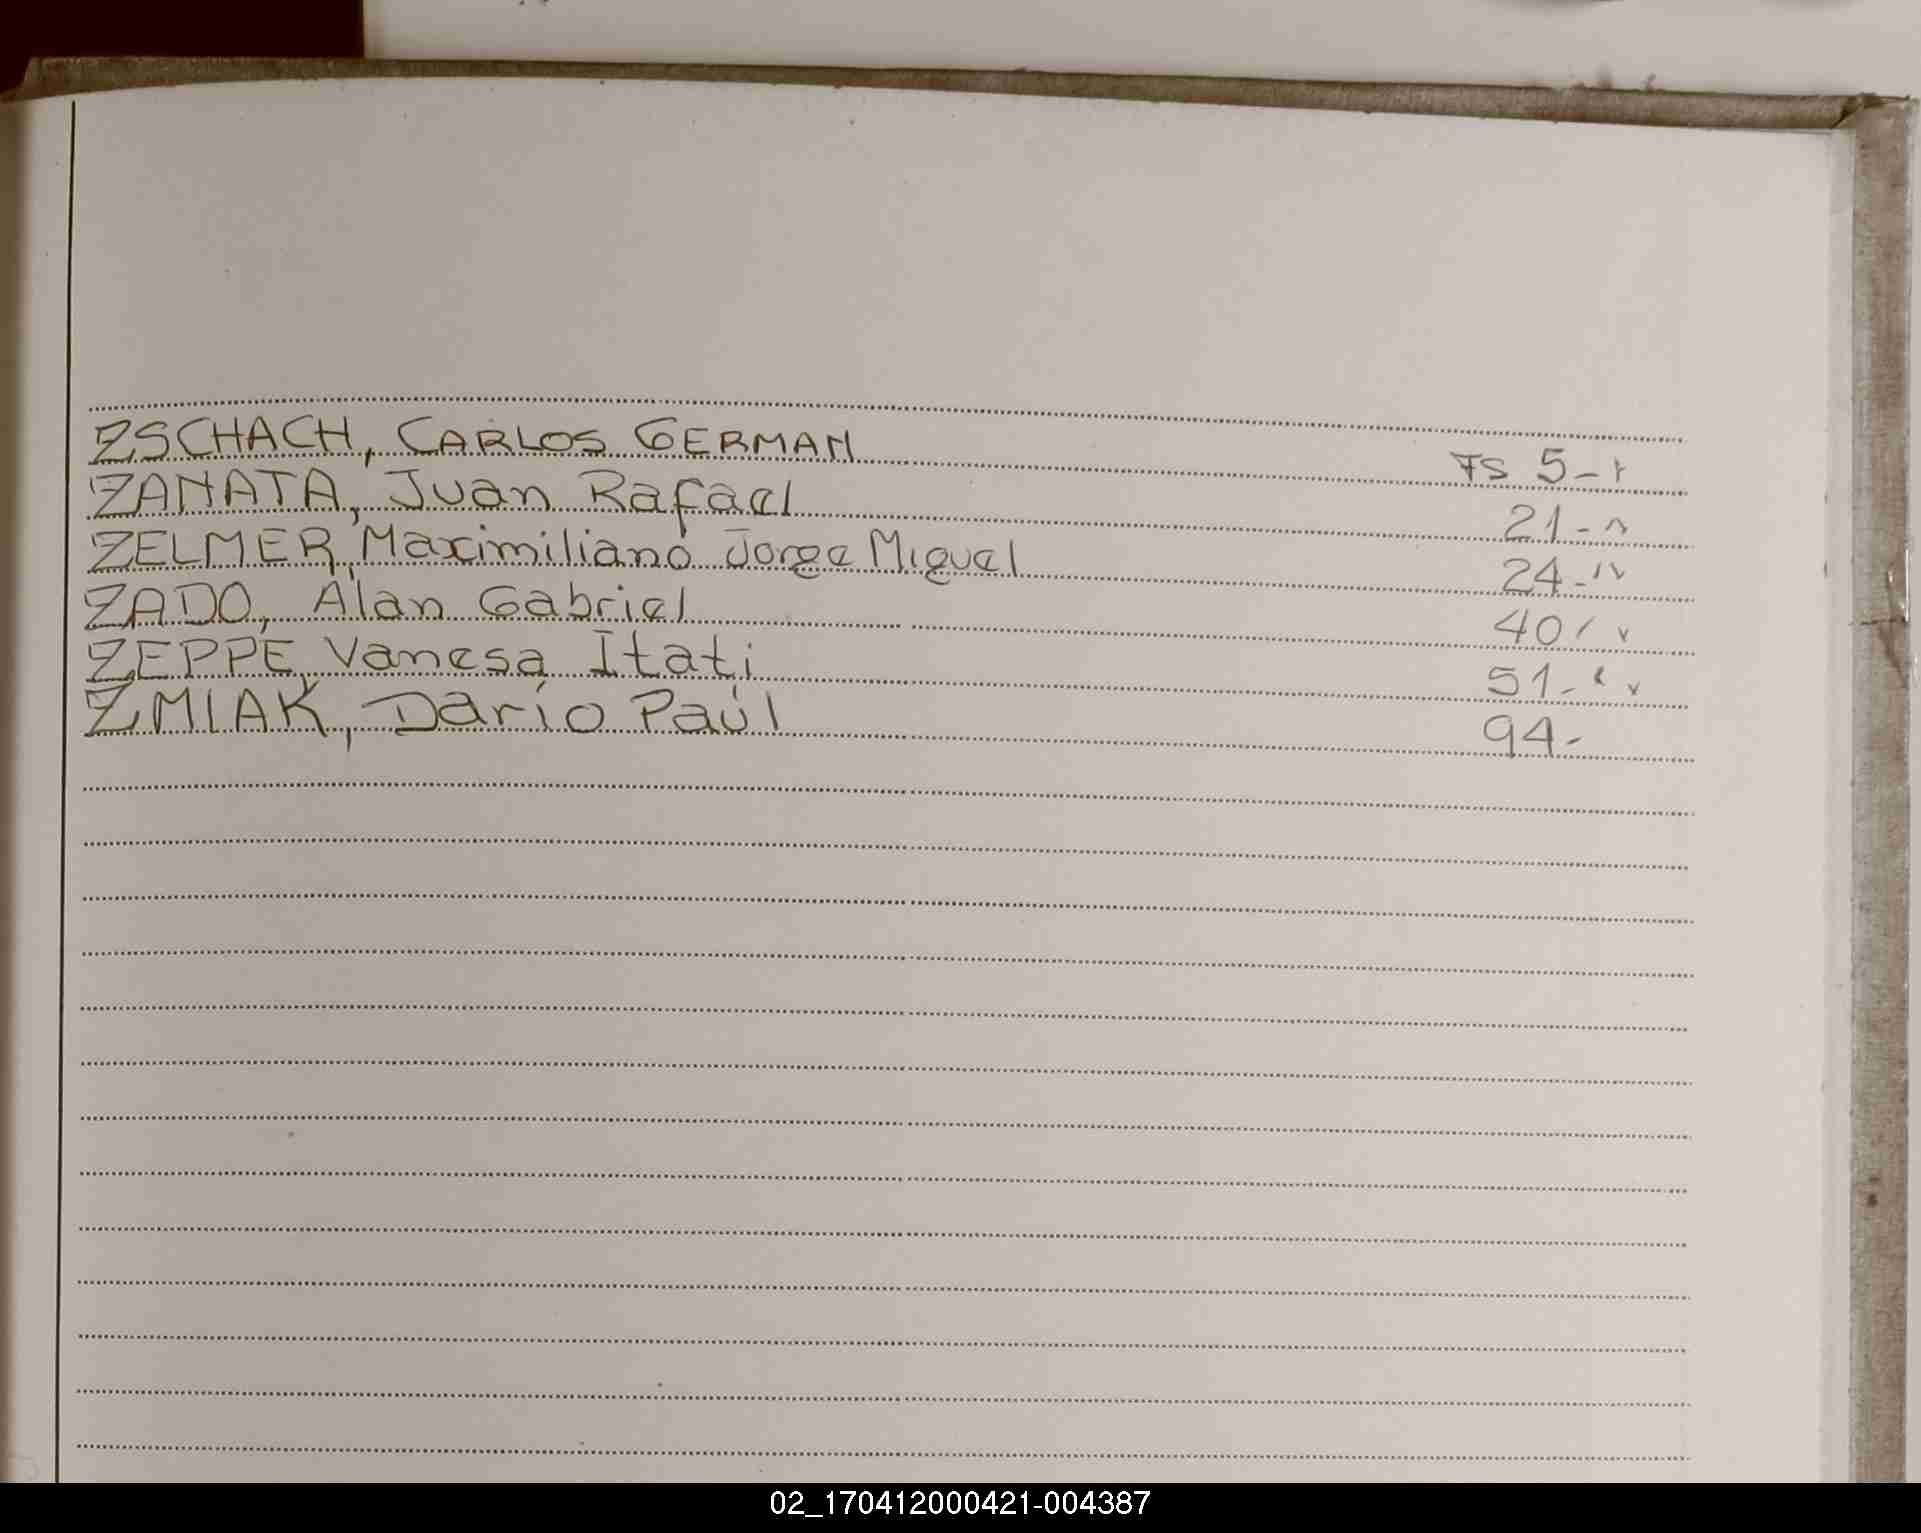 ZSCHACH, CARLOS GERMAN FS 5-
ZANATA, Juan Rafael 21-
ZELMER, Maximiliano Jorge Miguel 24-
ZADO, Alan Gabriel 40
ZEPPE, Vanesa Itati 51-
ZMIAK, Darío Paúl 94-
02_170412000421-004387